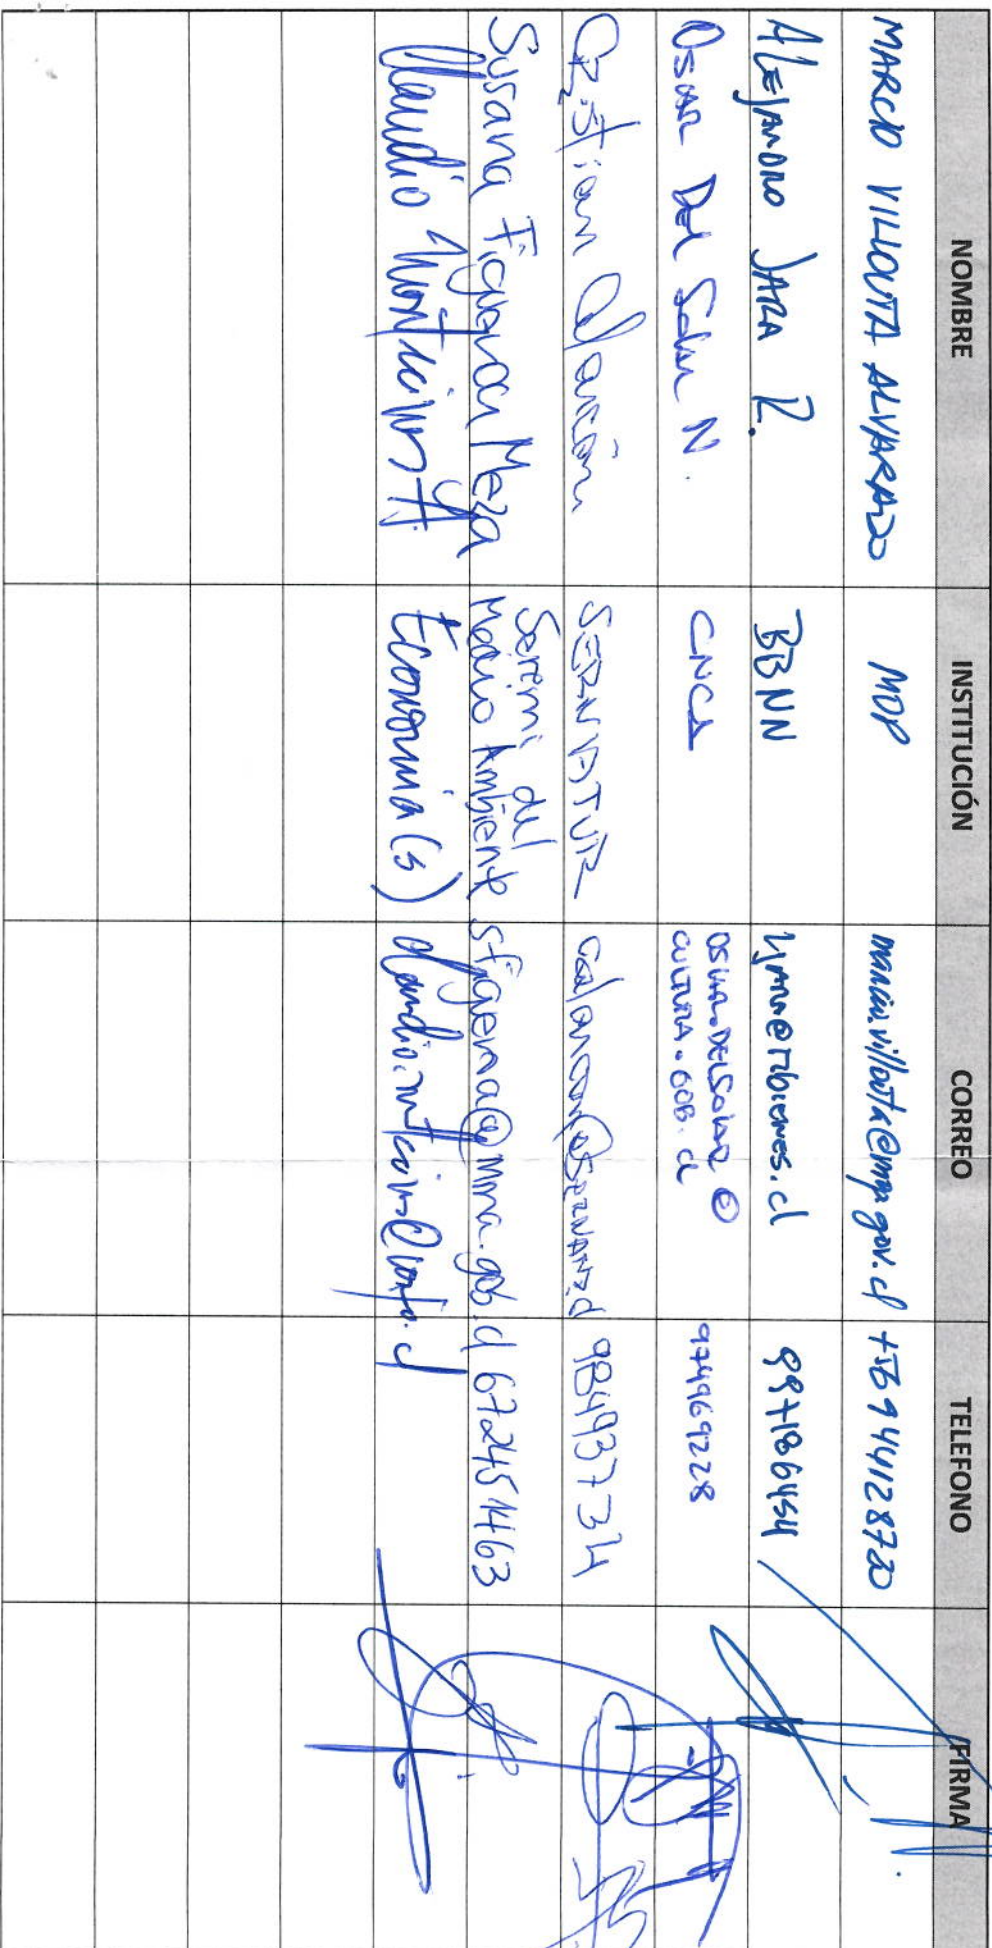 NOMBRE INSTITUCIÓN CORREO TELEFONO FIRMA
MARCIO VILLOUTA ALVARADO MOP marcio.villouta@mop.gov.cl +569 44128720
Alejandro JARA R. BBNN 997186454
OSCAR Del Solar N. CNCA OSCAR.DELSOLAR @
CULTURA.GOB.cl 974969228
Cristian Alarcón SERNATUR calarcon@SERNATUR.cl 98493734
Susana Figueroa Meza Seremi del
Medio Ambiente sfigueroa@mma.gob.cl 672451463
Claudio Economia (s)